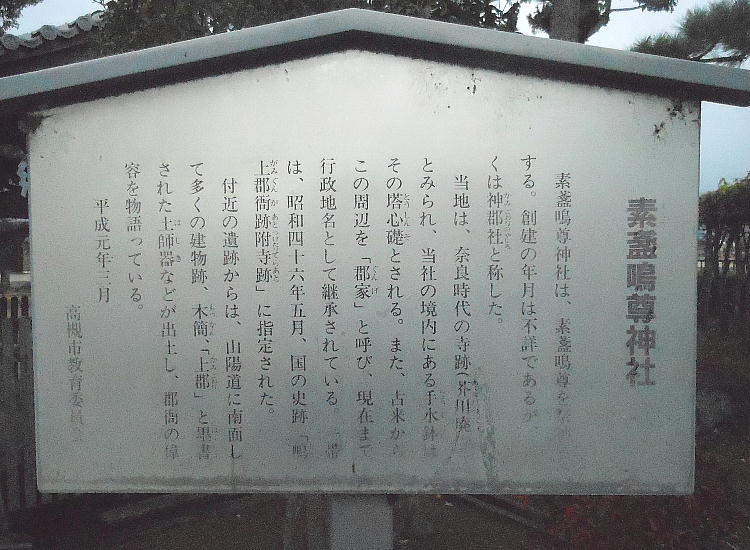 素盞嗚尊神社
素盞嗚尊神社は、素盞嗚尊を祭神と
する。創建の年月は不詳であるが、
くは神郡社と称した。
当地は、奈良時代の寺跡(芥川廃
とみられ、当社の境内にある手水鉢は
その塔心礎とされる。また、古来から
この周辺を「郡家」と呼び、現在まで
行政地名として継承されている 一帯
は、昭和四十六年五月、国の史跡「嶋
上郡衙跡附寺跡」に指定された。
付近の遺跡からは、山陽道に南面し
て多くの建物跡、木簡、「上郡」と墨書
された土師器などが出土し、郡衙の偉
容を物語っている。
平成元年三月
高槻市教育委員会